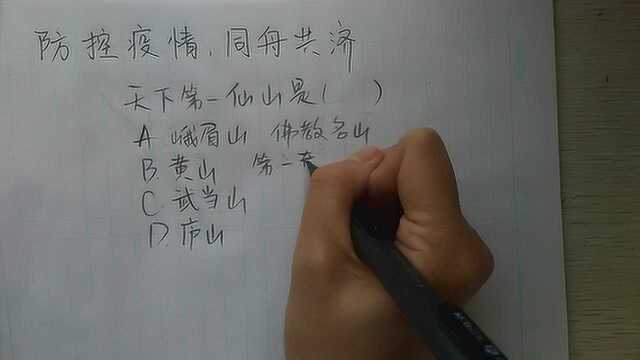 防控疫情,同舟共济
天下第一仙山是( )
A 峨眉山 佛教名山
B.黄山 第一
C.武当山
D.庐山